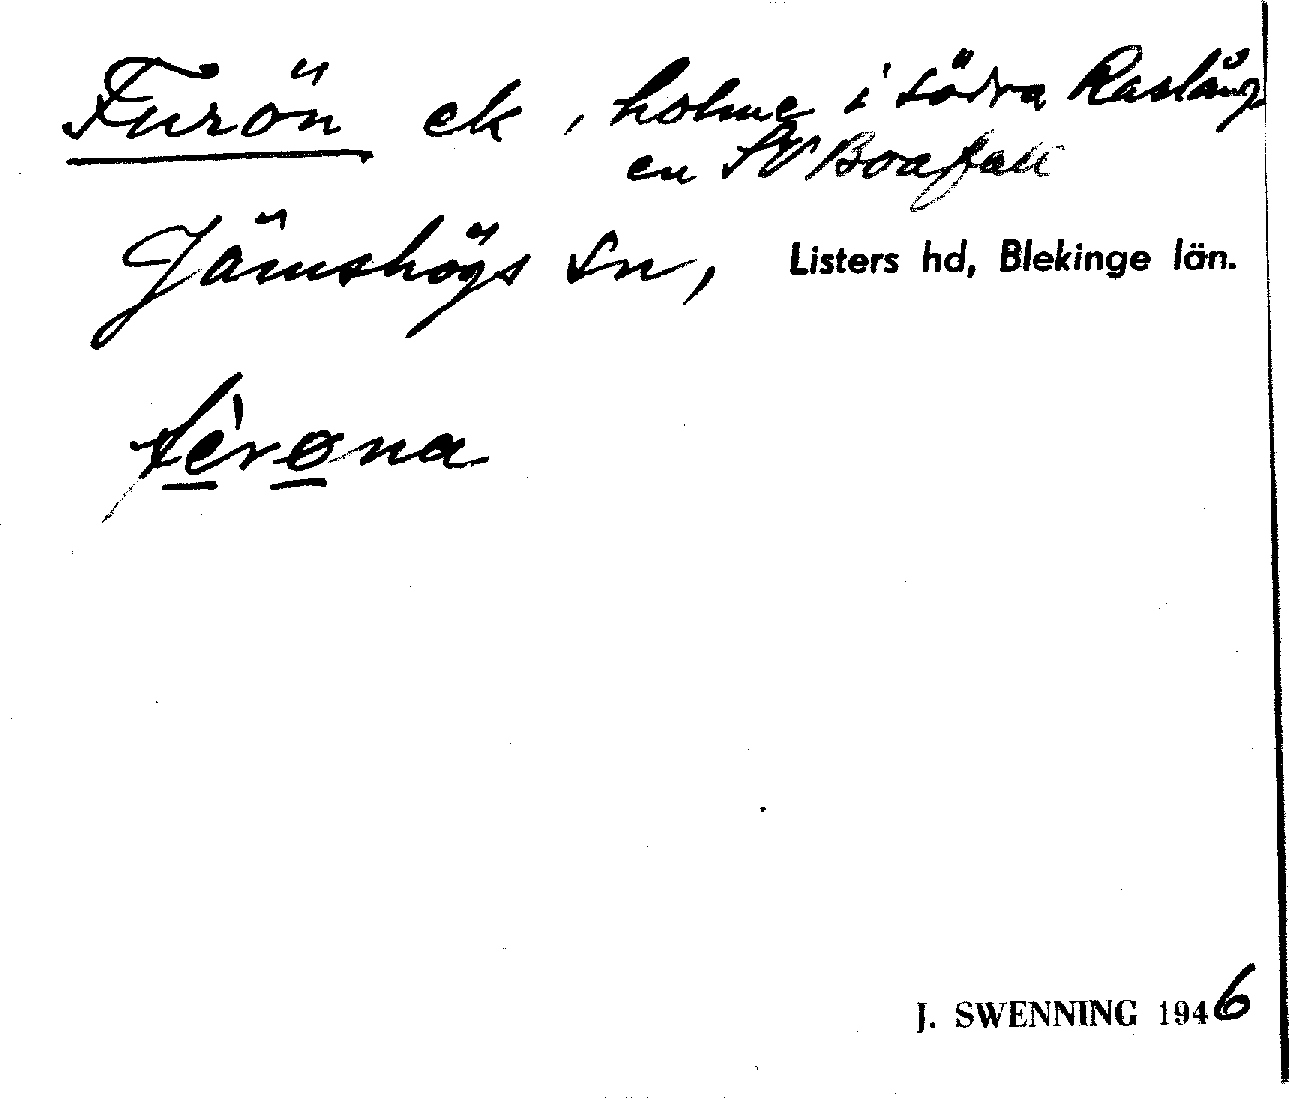 Furön ek, holme i södra Raslång
en SV Boafall
Jämshögs Sn, Listers hd, Blekinge län.
fèrøna
J. SWENNING 1946